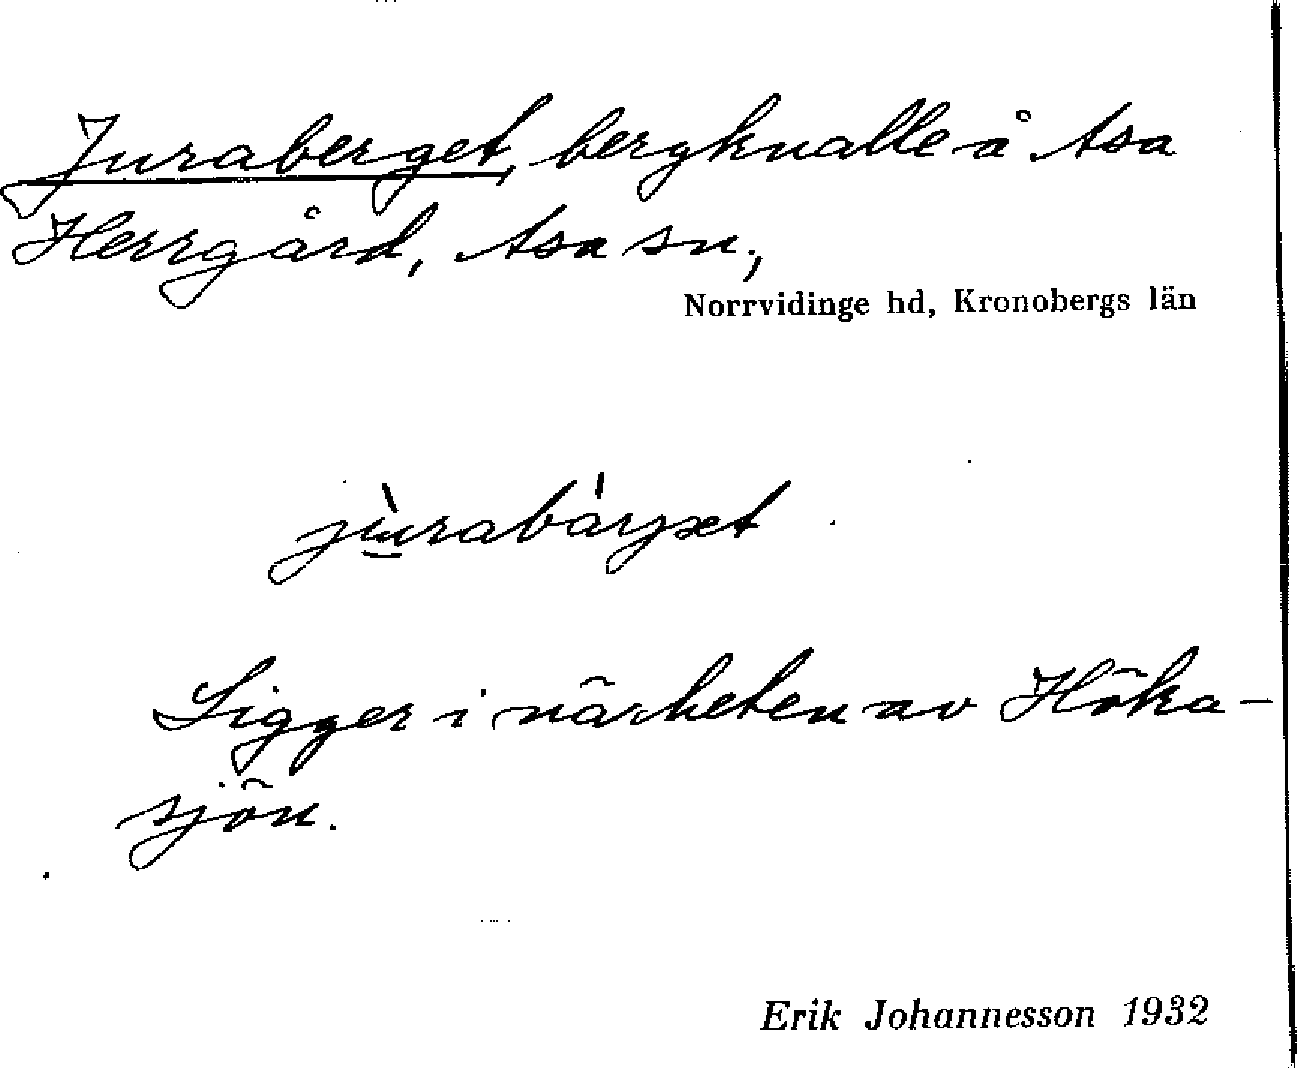 Juraberget, bergknalle å Asa
Herrgård, Asa sn.,
Norrvidinge hd, Kronobergs län
jùrabáryæt
Ligger i närheten av Höka-
sjön.
Erik Johannesson 1932